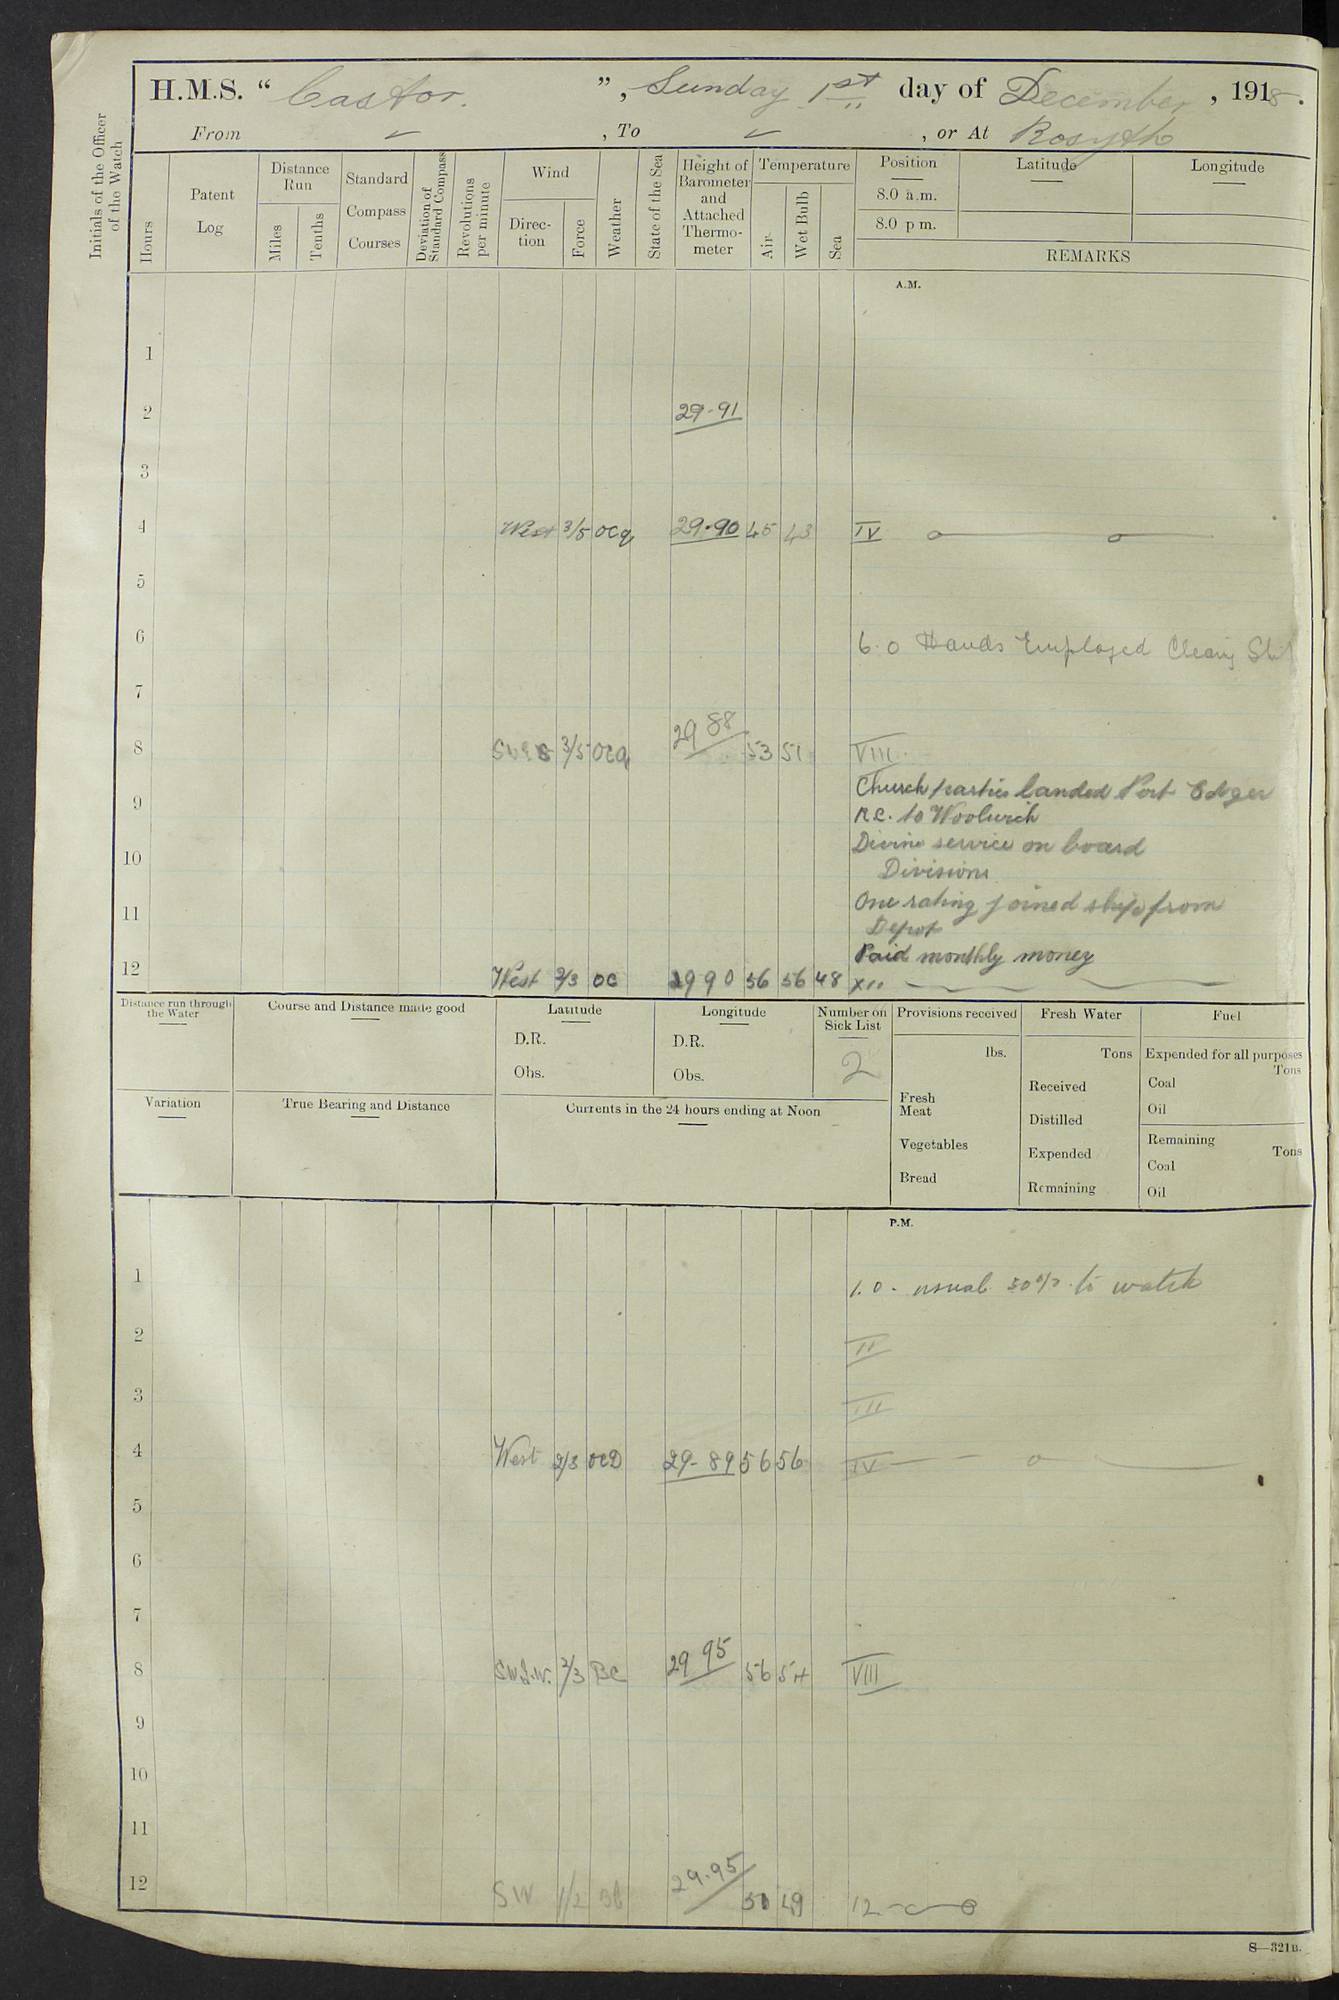 H.M.S. “ Castor. ”, Sunday 1st day of December, 1918.
From ✓, To ✓, or At Rosyth
Initials of the Officer of the Watch
Hours
Patent Log
Distance Run
Miles
Tenths
Standard Compass Courses
Deviation of Standard Compass
Revolutions per minute
Wind
Direction
Force
Weather
State of the Sea
Height of Barometer and Attached Thermometer
Temperature
Air
Wet Bulb
Sea
Position
Latitude
Longitude
8.0 a.m.
8.0 p m.
REMARKS
A.M.
1
2 29-91
3
4 West 3/5 ocq 29-90 45 43 IV
5
6 6.0 Hands Employed Cleang Ship
7
8 3/5 ocq 29 88 53 51 VIII.
Church parties landed Port Edgar
9 R.C. to Woolwich
Divine service on board
10 Divisions
11 One rating joined ship from
Depot
Paid monthly money
12 West 2/3 oc 29 90 56 56 48 XII
Distance run through the Water
Course and Distance made good
Latitude
D.R.
Obs.
Longitude
D.R.
Obs.
Number on Sick List
2
Provisions received
lbs.
Fresh Meat
Vegetables
Bread
Fresh Water
Tons
Received
Distilled
Expended
Remaining
Fuel
Expended for all purposes
Tons
Coal
Oil
Remaining
Tons
Coal
Oil
Variation
True Bearing and Distance
Currents in the 24 hours ending at Noon
P.M.
1 1.0. usual 50% to watch
2 II
3 III
4 West 2/3 ocD 29-89 56 56 IV
5
6
7
8 2/3 BC 29 95 56 54 VIII
9
10
11
12 SW 1/2 29.95 49 12
S—321B.